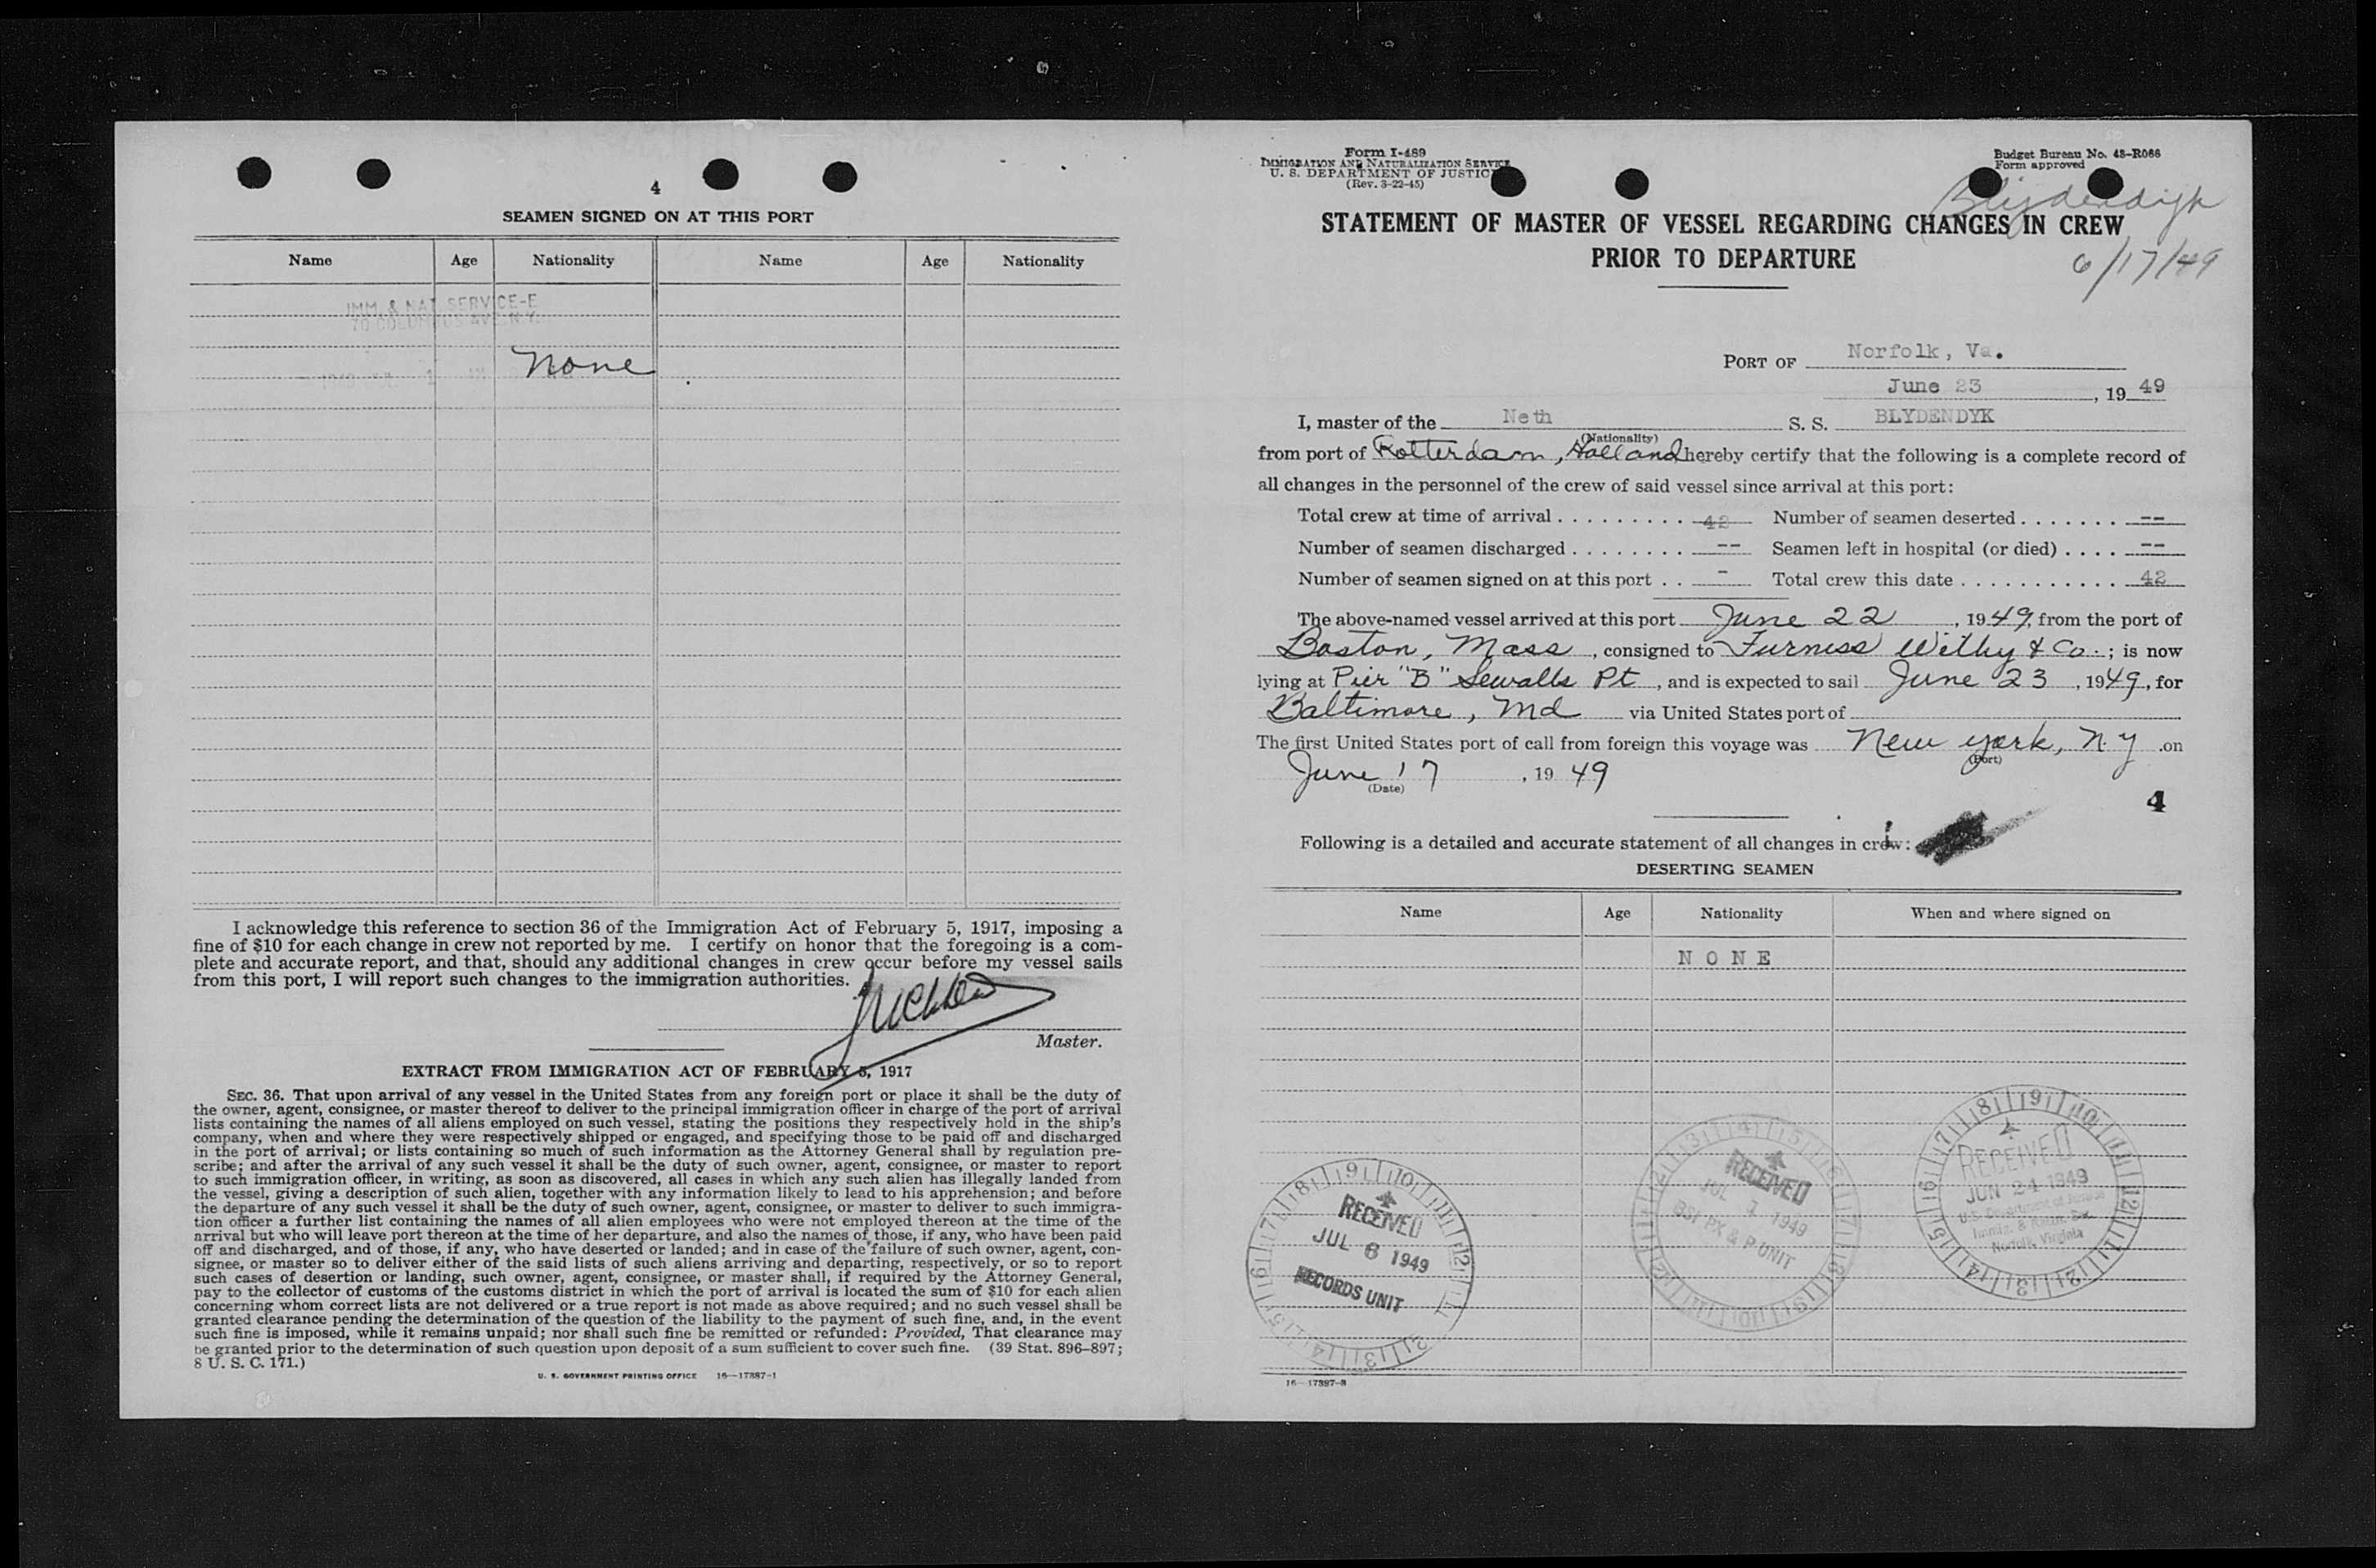 4
SEAMEN SIGNED ON AT THIS PORT
Name Age Nationality Name Age Nationality
IMM. & NAT. SERVICE-E
70 COLUMBUS AV. N.Y.
None
I acknowledge this reference to section 36 of the Immigration Act of February 5, 1917, imposing a
fine of $10 for each change in crew not reported by me. I certify on honor that the foregoing is a com-
plete and accurate report, and that, should any additional changes in crew occur before my vessel sails
from this port, I will report such changes to the immigration authorities.
Master.
EXTRACT FROM IMMIGRATION ACT OF FEBRUARY 5, 1917
SEC. 36. That upon arrival of any vessel in the United States from any foreign port or place it shall be the duty of
the owner, agent, consignee, or master thereof to deliver to the principal immigration officer in charge of the port of arrival
lists containing the names of all aliens employed on such vessel, stating the positions they respectively hold in the ship's
company, when and where they were respectively shipped or engaged, and specifying those to be paid off and discharged
in the port of arrival; or lists containing so much of such information as the Attorney General shall by regulation pre-
scribe; and after the arrival of any such vessel it shall be the duty of such owner, agent, consignee, or master to report
to such immigration officer, in writing, as soon as discovered, all cases in which any such alien has illegally landed from
the vessel, giving a description of such alien, together with any information likely to lead to his apprehension; and before
the departure of any such vessel it shall be the duty of such owner, agent, consignee, or master to deliver to such immigra-
tion officer a further list containing the names of all alien employees who were not employed thereon at the time of the
arrival but who will leave port thereon at the time of her departure, and also the names of those, if any, who have been paid
off and discharged, and of those, if any, who have deserted or landed; and in case of the failure of such owner, agent, con-
signee, or master so to deliver either of the said lists of such aliens arriving and departing, respectively, or so to report
such cases of desertion or landing, such owner, agent, consignee, or master shall, if required by the Attorney General,
pay to the collector of customs of the customs district in which the port of arrival is located the sum of $10 for each alien
concerning whom correct lists are not delivered or a true report is not made as above required; and no such vessel shall be
granted clearance pending the determination of the question of the liability to the payment of such fine, and, in the event
such fine is imposed, while it remains unpaid; nor shall such fine be remitted or refunded: Provided, That clearance may
be granted prior to the determination of such question upon deposit of a sum sufficient to cover such fine. (39 Stat. 896–897;
8 U. S. C. 171.)
U. S. GOVERNMENT PRINTING OFFICE 16—17387-1
Form I-489
IMMIGRATION AND NATURALIZATION SERVICE
U. S. DEPARTMENT OF JUSTICE
(Rev. 3-22-45)
Budget Bureau No. 43-R066
Form approved
Blydendijk
STATEMENT OF MASTER OF VESSEL REGARDING CHANGES IN CREW
PRIOR TO DEPARTURE
6/17/49
PORT OF Norfolk, Va.
June 23, 19 49
I, master of the Neth S. S. BLYDENDYK
(Nationality)
from port of Rotterdam, Holland hereby certify that the following is a complete record of
all changes in the personnel of the crew of said vessel since arrival at this port:
Total crew at time of arrival . . . . . . . . . 42 Number of seamen deserted . . . . . . . --
Number of seamen discharged . . . . . . . . -- Seamen left in hospital (or died) . . . . --
Number of seamen signed on at this port . . - Total crew this date . . . . . . . . . . . . 42
The above-named vessel arrived at this port June 22, 1949, from the port of
Boston, Mass, consigned to Furness Withy & Co.; is now
lying at Pier "B" Sewalls Pt, and is expected to sail June 23, 1949, for
Baltimore, Md via United States port of
The first United States port of call from foreign this voyage was New York, N.Y. on
(Port)
June 17, 19 49
(Date)
4
Following is a detailed and accurate statement of all changes in crew:
DESERTING SEAMEN
Name Age Nationality When and where signed on
NONE
RECEIVED
JUL 6 1949
RECORDS UNIT
RECEIVED
JUL 1 1949
BSI PX & P UNIT
RECEIVED
JUN 24 1949
U.S. Department of Justice
Immig. & Natz. Ser.
Norfolk, Virginia
16—17387-3